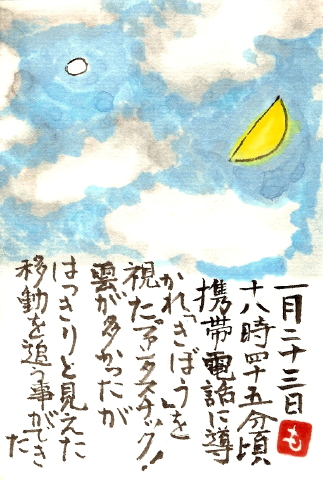 一月二十三日
十八時四十五分頃
携帯電話に導
かれ「きぼう」を
視た。ファンタスチック!
雲が多かったが
はっきりと見えた
移動を追う事ができ
た
も